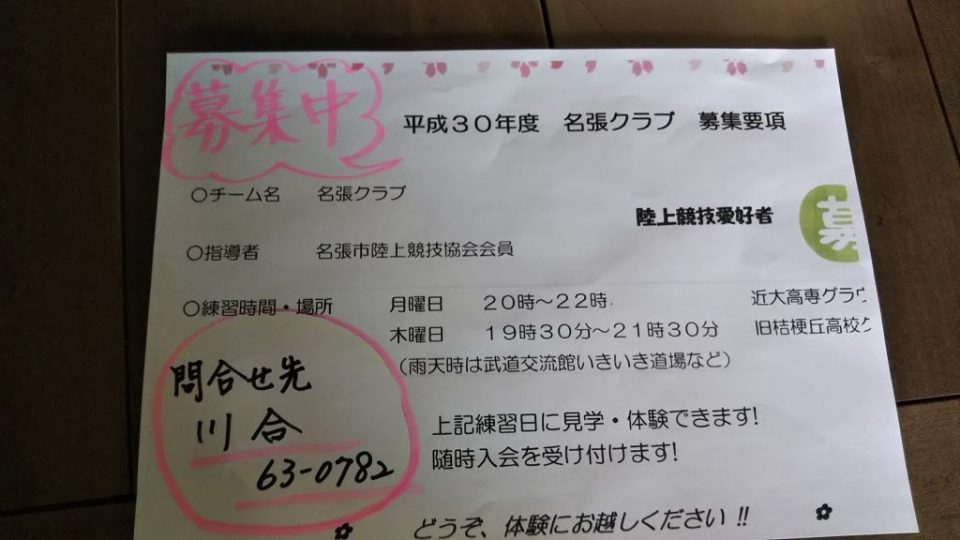 募集中
平成30年度 名張クラブ 募集要項
○チーム名 名張クラブ
陸上競技愛好者
募
○指導者 名張市陸上競技協会会員
○練習時間・場所 月曜日 20時~22時 近大高専グラウ
木曜日 19時30分~21時30分 旧桔梗丘高校グ
(雨天時は武道交流館いきいき道場など)
問合せ先
川合
63-0782
上記練習日に見学・体験できます!
随時入会を受け付けます!
どうぞ、体験にお越しください!!